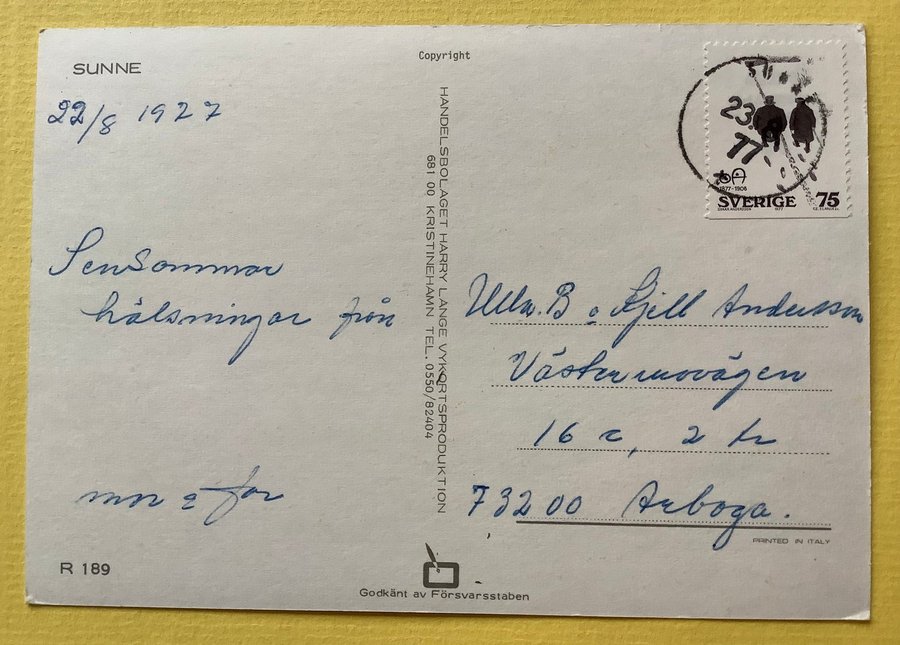 SUNNE
22/8 1977
Sensommar
hälsningar från
mor o far
R 189
Copyright
HANDELSBOLAGET HARRY LANGE VYKORTSPRODUKTION
681 00 KRISTINEHAMN TEL. 0550/82404
Godkänt av Försvarsstaben
23.8
77
1877-1906
SVERIGE 75
OSKAR ANDERSSON 1977
Ulla.B o Kjell Andersson
Västermovägen
16 c, 2 tr
73200 Arboga.
PRINTED IN ITALY